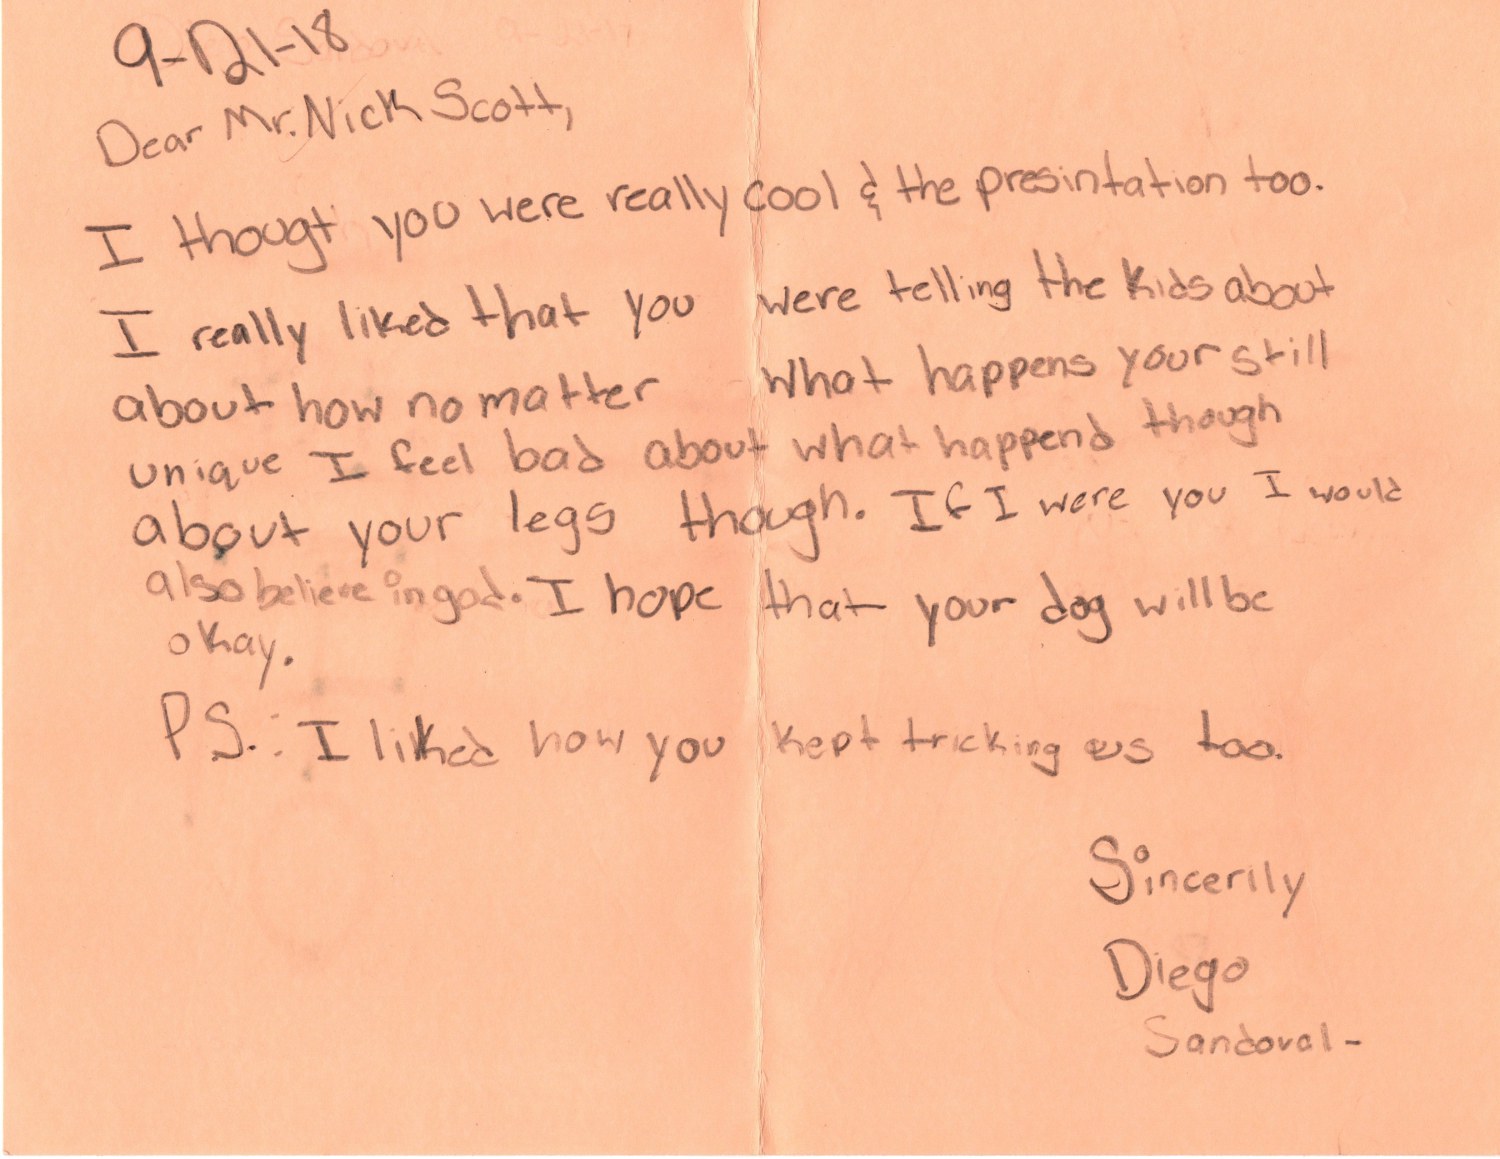 9-21-18
Dear Mr. Nick Scott,
I thougt you were really cool & the presintation too.
I really liked that you were telling the kids about
about how no matter what happens your still
unique I feel bad about what happend though
about your legs though. If I were you I would
also believe in god. I hope that your dog will be
okay.
PS.: I liked how you kept tricking us too.
Sincerily
Diego
Sandoval-